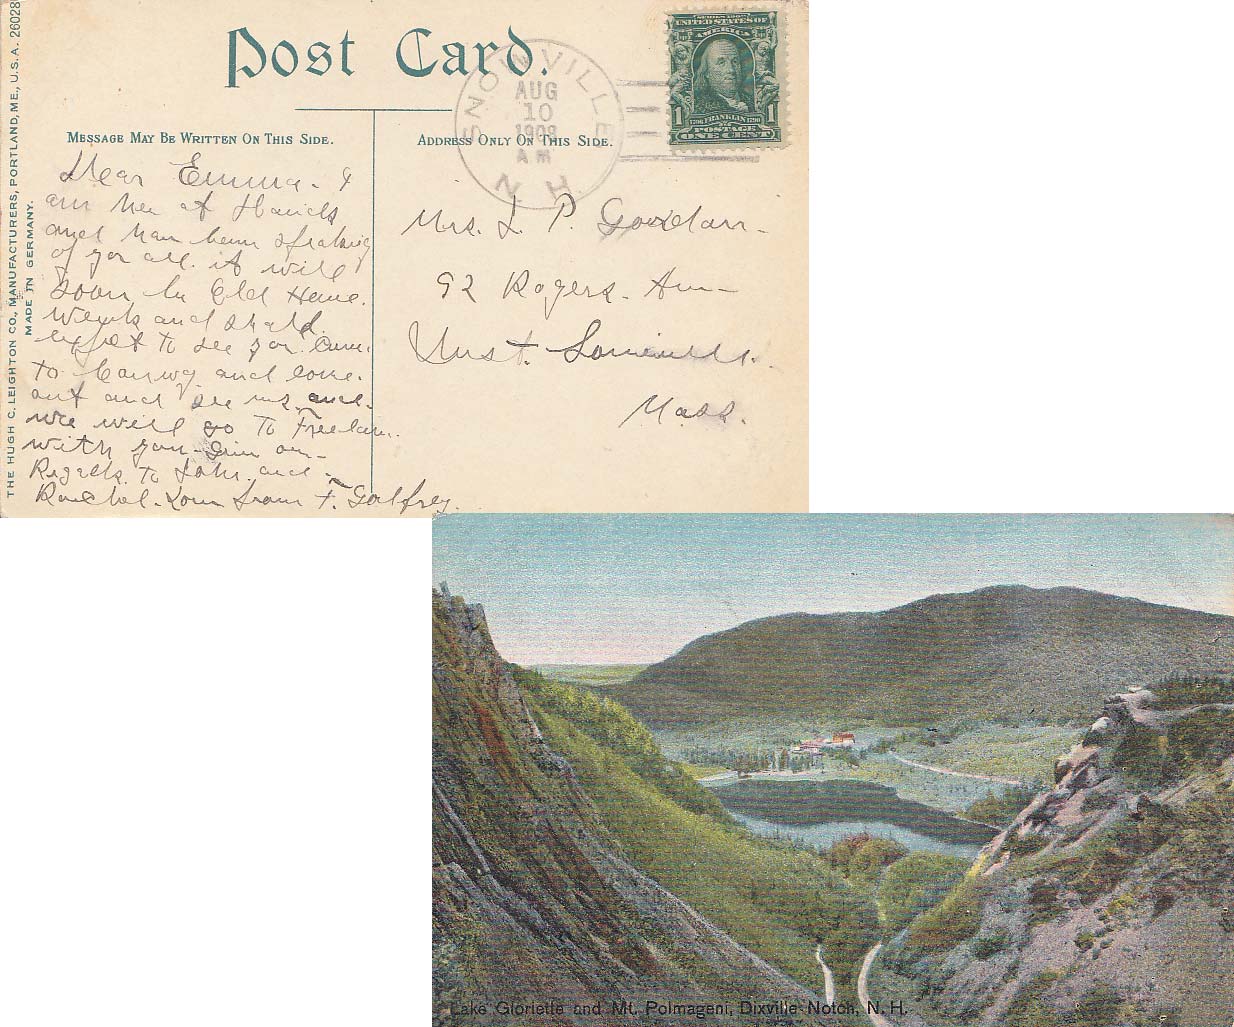 THE HUGH C. LEIGHTON CO., MANUFACTURERS, PORTLAND, ME., U.S.A. 26028
MADE IN GERMANY.
Post Card.
MESSAGE MAY BE WRITTEN ON THIS SIDE.
ADDRESS ONLY ON THIS SIDE.
SNOWVILLE
AUG
10
1908
A M
N. H.
SERIES 1902
UNITED STATES OF
AMERICA
1 1706 FRANKLIN 1790 1
POSTAGE
ONE CENT
Dear Emma. I
am here at
and have been speaking
of you all. it will
soon be Old Home.
Week and shall
expect to see you. Come
to Conway and come.
out and see us. and.
we will go To Freedom.
with you
Regards. To John. and
Rachel. from F. Galfrey.
Mrs. L. P. Goodan.
92 Rogers. Ave
West. Somerville.
Mass.
Lake Gloriette and Mt. Polmageni, Dixville Notch, N. H.